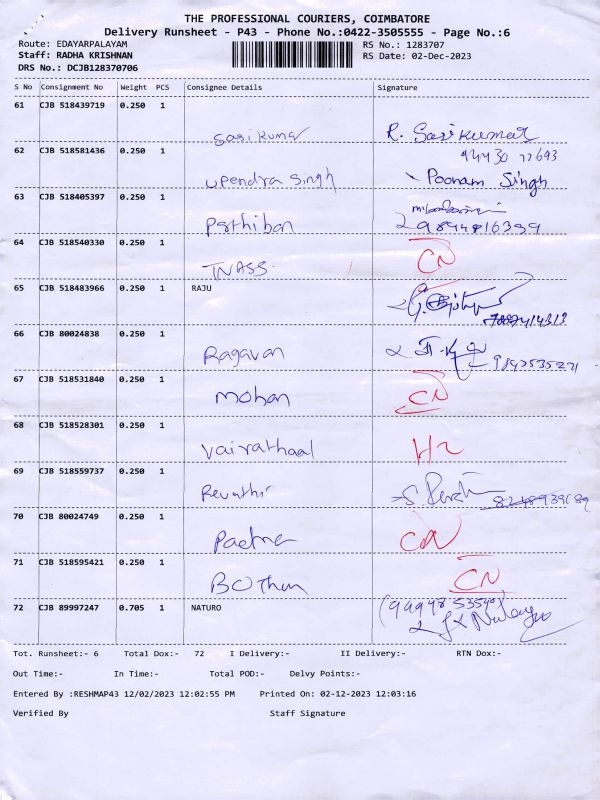 THE PROFESSIONAL COURIERS, COIMBATORE
Delivery Runsheet - P43 - Phone No.:0422-3505555 - Page No.:6
Route: EDAYARPALAYAM RS No.: 1283707
Staff: RADHA KRISHNAN RS Date: 02-Dec-2023
DRS No.: DCJB128370706
S No Consignment No Weight PCS Consignee Details Signature
61 CJB 518439719 0.250 1
Sasikumar R. Sasikumar
94430 77693
62 CJB 518581436 0.250 1
Upendra Singh Poonam Singh
63 CJB 518405397 0.250 1
Parthiban 9894816399
64 CJB 518540330 0.250 1 CN
TNASS
65 CJB 518483966 0.250 1 RAJU
66 CJB 80024838 0.250 1
Ragavan
67 CJB 518531840 0.250 1
Mohan CN
68 CJB 518528301 0.250 1
Vairathaal
69 CJB 518559737 0.250 1
Revathi
70 CJB 80024749 0.250 1
71 CJB 518595421 0.250 1
CN
72 CJB 89997247 0.705 1 NATURO
Tot. Runsheet:- 6 Total Dox:- 72 I Delivery:- II Delivery:- RTN Dox:-
Out Time:- In Time:- Total POD:- Delvy Points:-
Entered By :RESHMAP43 12/02/2023 12:02:55 PM Printed On: 02-12-2023 12:03:16
Verified By Staff Signature